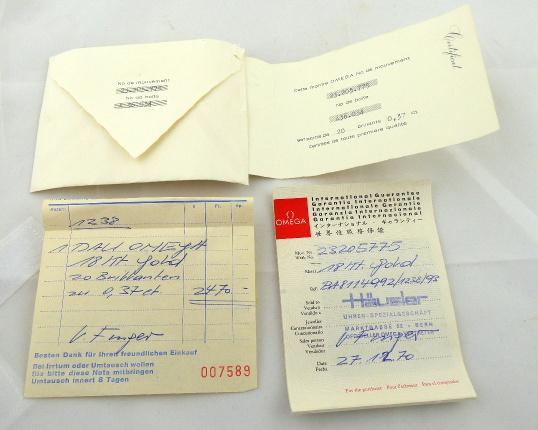 No de mouvement
No de boîte
Certificat
Cette montre OMEGA No de mouvement
23.205.775
No de boîte
sertie de 20 brillants 0,37 ct
1238
1 DAU OMEGA
18 Kt. Gold
20 Brillanten
zu 0,37 ct 2470.-
Besten Dank für Ihren freundlichen Einkauf
Bei Irrtum oder Umtausch wollen
Sie bitte diese Nota mitbringen
Umtausch innert 8 Tagen
007589
Ω
OMEGA
International Guarantee
Garantie Internationale
Internationale Garantie
Garanzia Internazionale
Garantía Internacional
インターナショナル・ギャランティー
Mvt. No 23205775
18 Kt. Gold
Ref. BA8114992/1238/93
Sold to
Vendu à
Häusler
UHREN-SPEZIALGESCHÄFT
MARKTGASSE BERN
Sales person
Vendeur
Date
Fecha
27.12.70
For the purchaser Pour l'acheteur